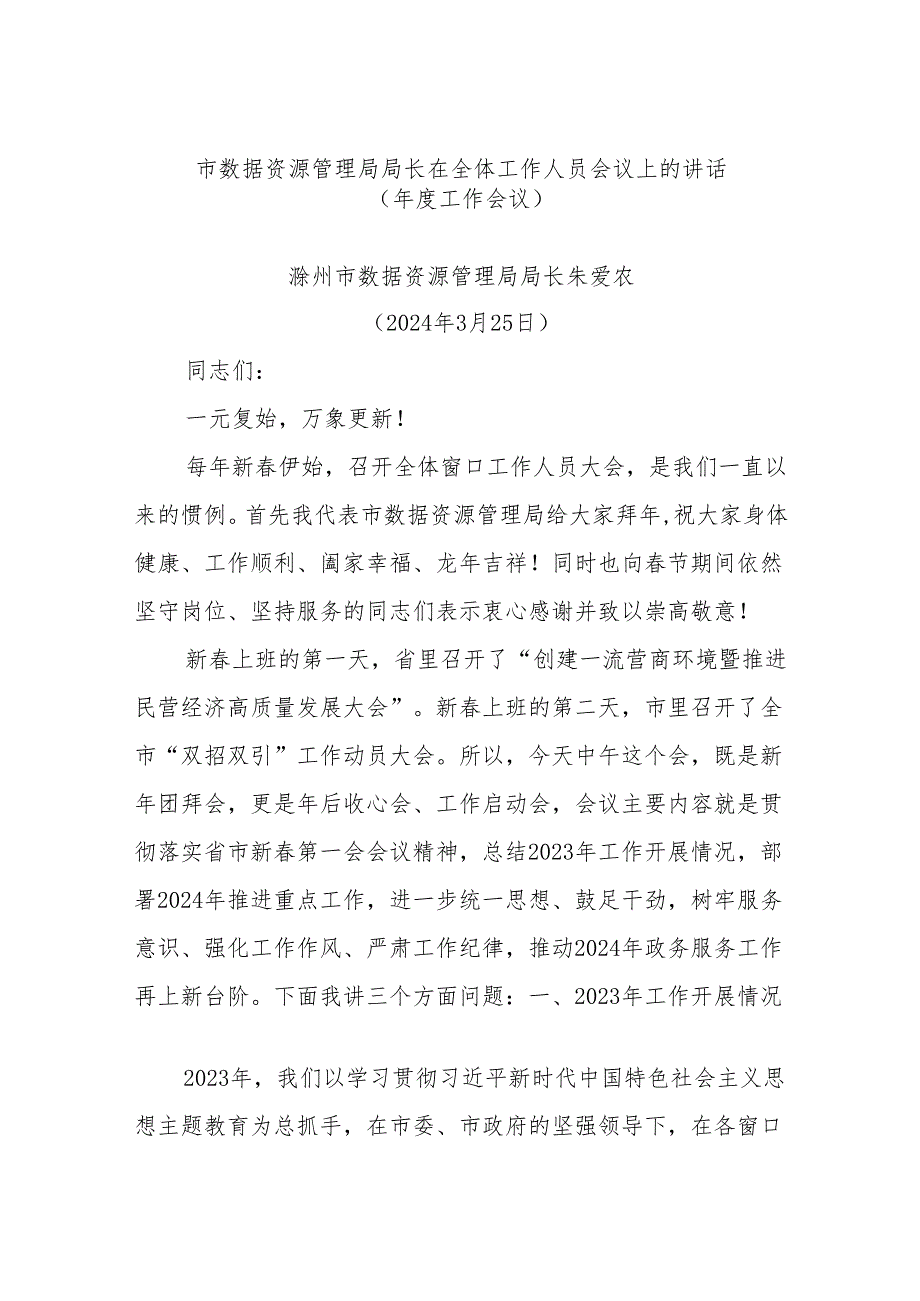 市数据资源管理局局长在全体工作人员会议上的讲话
（年度工作会议）
滁州市数据资源管理局局长朱爱农
（2024年3月25日）
同志们：
一元复始，万象更新！
每年新春伊始，召开全体窗口工作人员大会，是我们一直以
来的惯例。首先我代表市数据资源管理局给大家拜年,祝大家身体
健康、工作顺利、阖家幸福、龙年吉祥！同时也向春节期间依然
坚守岗位、坚持服务的同志们表示衷心感谢并致以崇高敬意！
新春上班的第一天，省里召开了“创建一流营商环境暨推进
民营经济高质量发展大会”。新春上班的第二天，市里召开了全
市“双招双引”工作动员大会。所以，今天中午这个会，既是新
年团拜会，更是年后收心会、工作启动会，会议主要内容就是贯
彻落实省市新春第一会会议精神，总结2023年工作开展情况，部
署2024年推进重点工作，进一步统一思想、鼓足干劲，树牢服务
意识、强化工作作风、严肃工作纪律，推动2024年政务服务工作
再上新台阶。下面我讲三个方面问题：一、2023年工作开展情况
2023年，我们以学习贯彻习近平新时代中国特色社会主义思
想主题教育为总抓手，在市委、市政府的坚强领导下，在各窗口